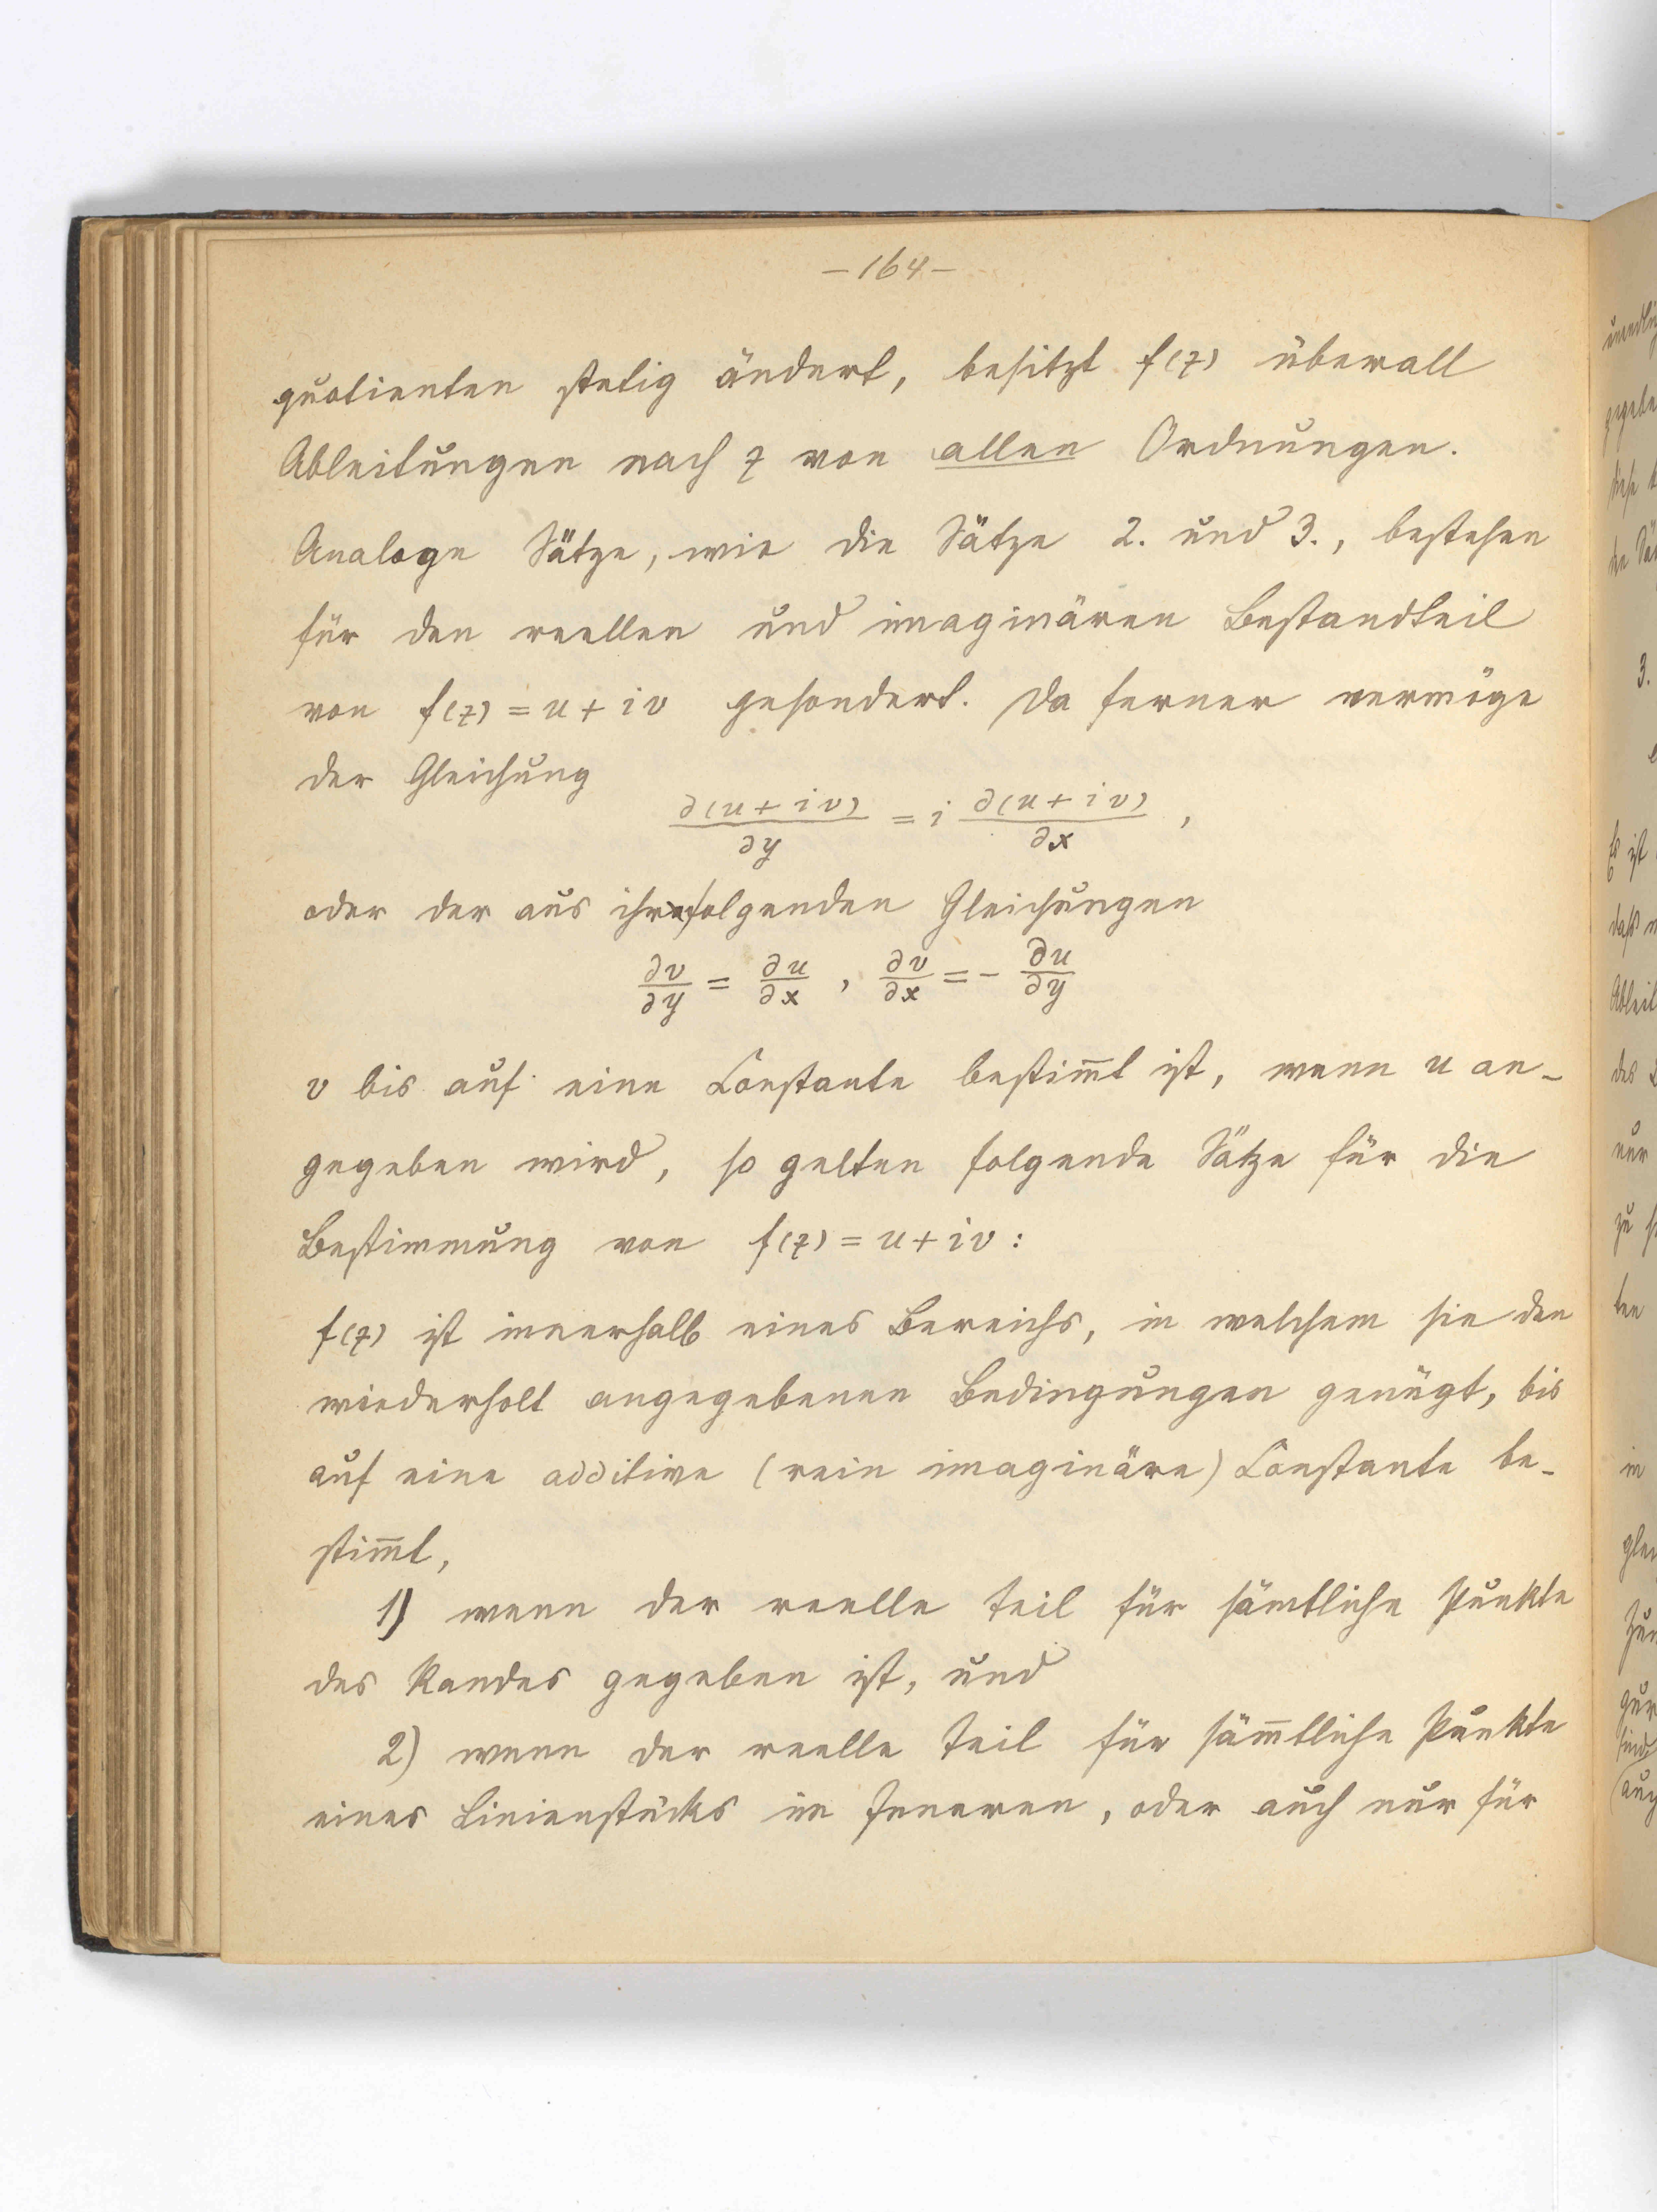 – 164 –
quotienten stetig ändert, besitzt f(z) überall
Ableitungen nach z von allen Ordnungen.
Analoge Sätze, wie die Sätze 2. und 3., bestehen
für den reellen und imaginären Bestandteil
von f(z) = u + iv gesondert. Da ferner vermöge
der Gleichung
∂(u + iv)/∂y = i ∂(u + iv)/∂x ,
oder der aus ihr folgenden Gleichungen
∂v/∂y = ∂u/∂x , ∂v/∂x = – ∂u/∂y
v bis auf eine Constante bestim̅t ist, wenn u an-
gegeben wird, so gelten folgende Sätze für die
Bestimmung von f(z) = u + iv :
f(z) ist innerhalb eines Bereichs, in welchem sie den
wiederholt angegebenen Bedingungen genügt, bis
auf eine additive (rein imaginäre) Constante be-
stim̅t,
1) wenn der reelle Teil für sämtliche Punkte
des Randes gegeben ist, und
2) wenn der reelle Teil für säm̅tliche Punkte
eines Linienstücks im Inneren, oder auch nur für
3.
Es ist
daß
des
nur
zu
ten
im
sind